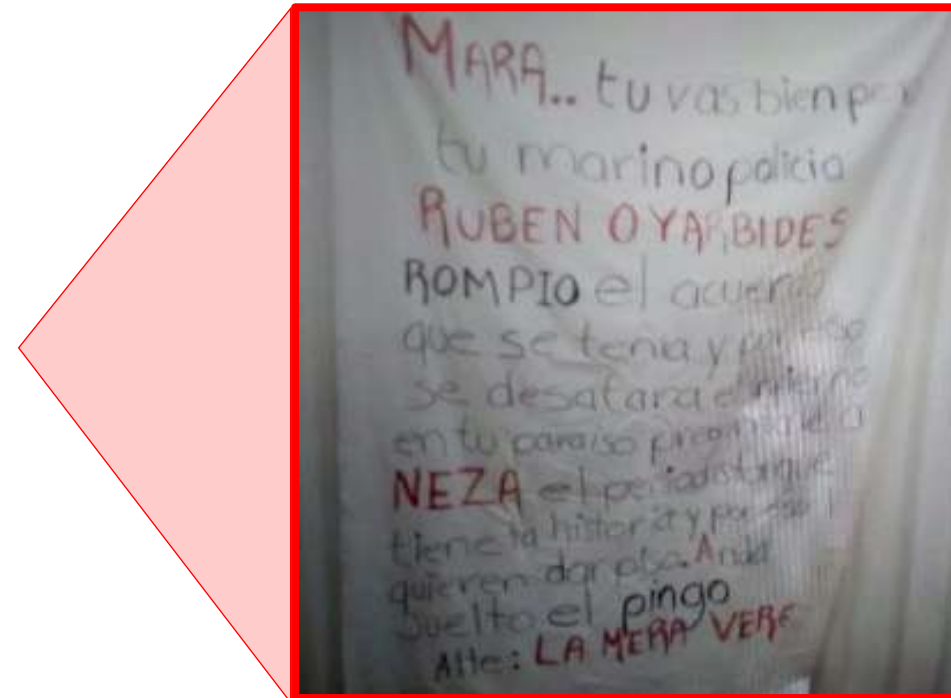 MARA.. tu vas bien
tu marino policia
RUBEN OYARBIDES
ROMPIO el
que se tenia y
se desatara
en tu paraiso
NEZA el periodista que
tiene la historia y por eso
quieren dar piso. Anda
suelto el pingo
Atte: LA MERA VERE